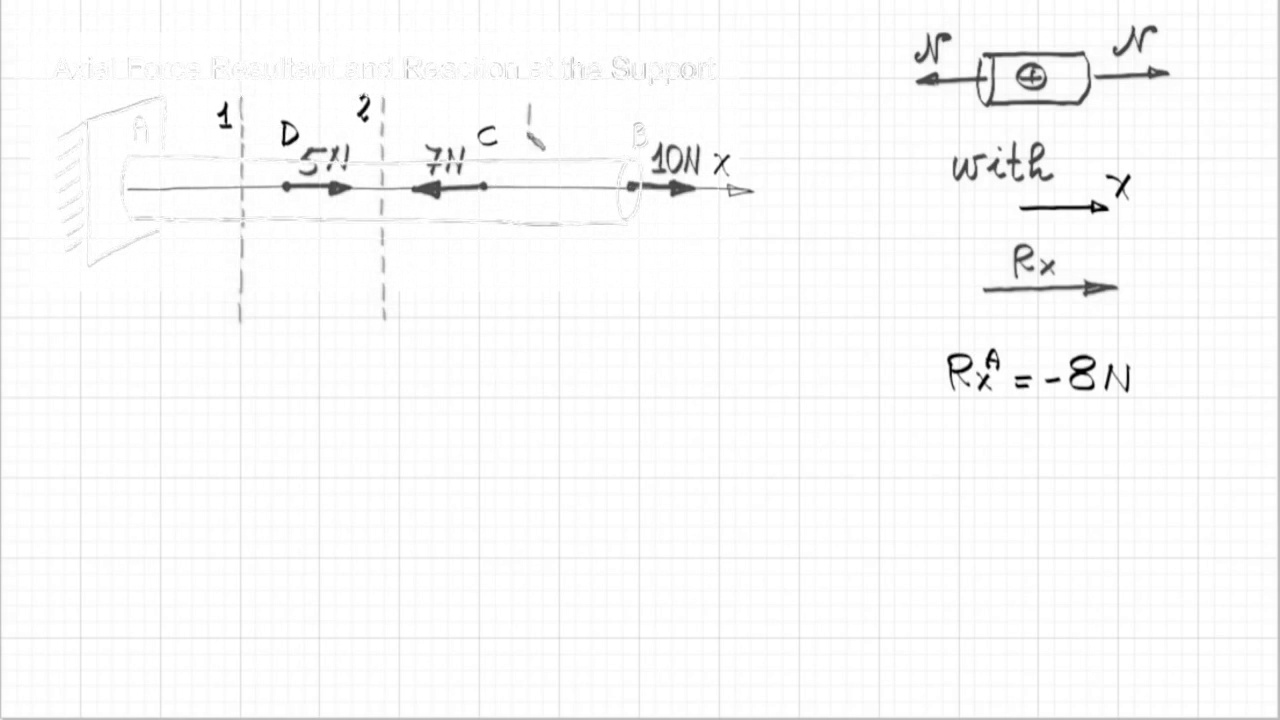 Axial Force Resultant and Reaction at the Support
A 1 D 5N 2 7N C B 10N X
N N
+
with
X
Rx
Rx^A = -8N